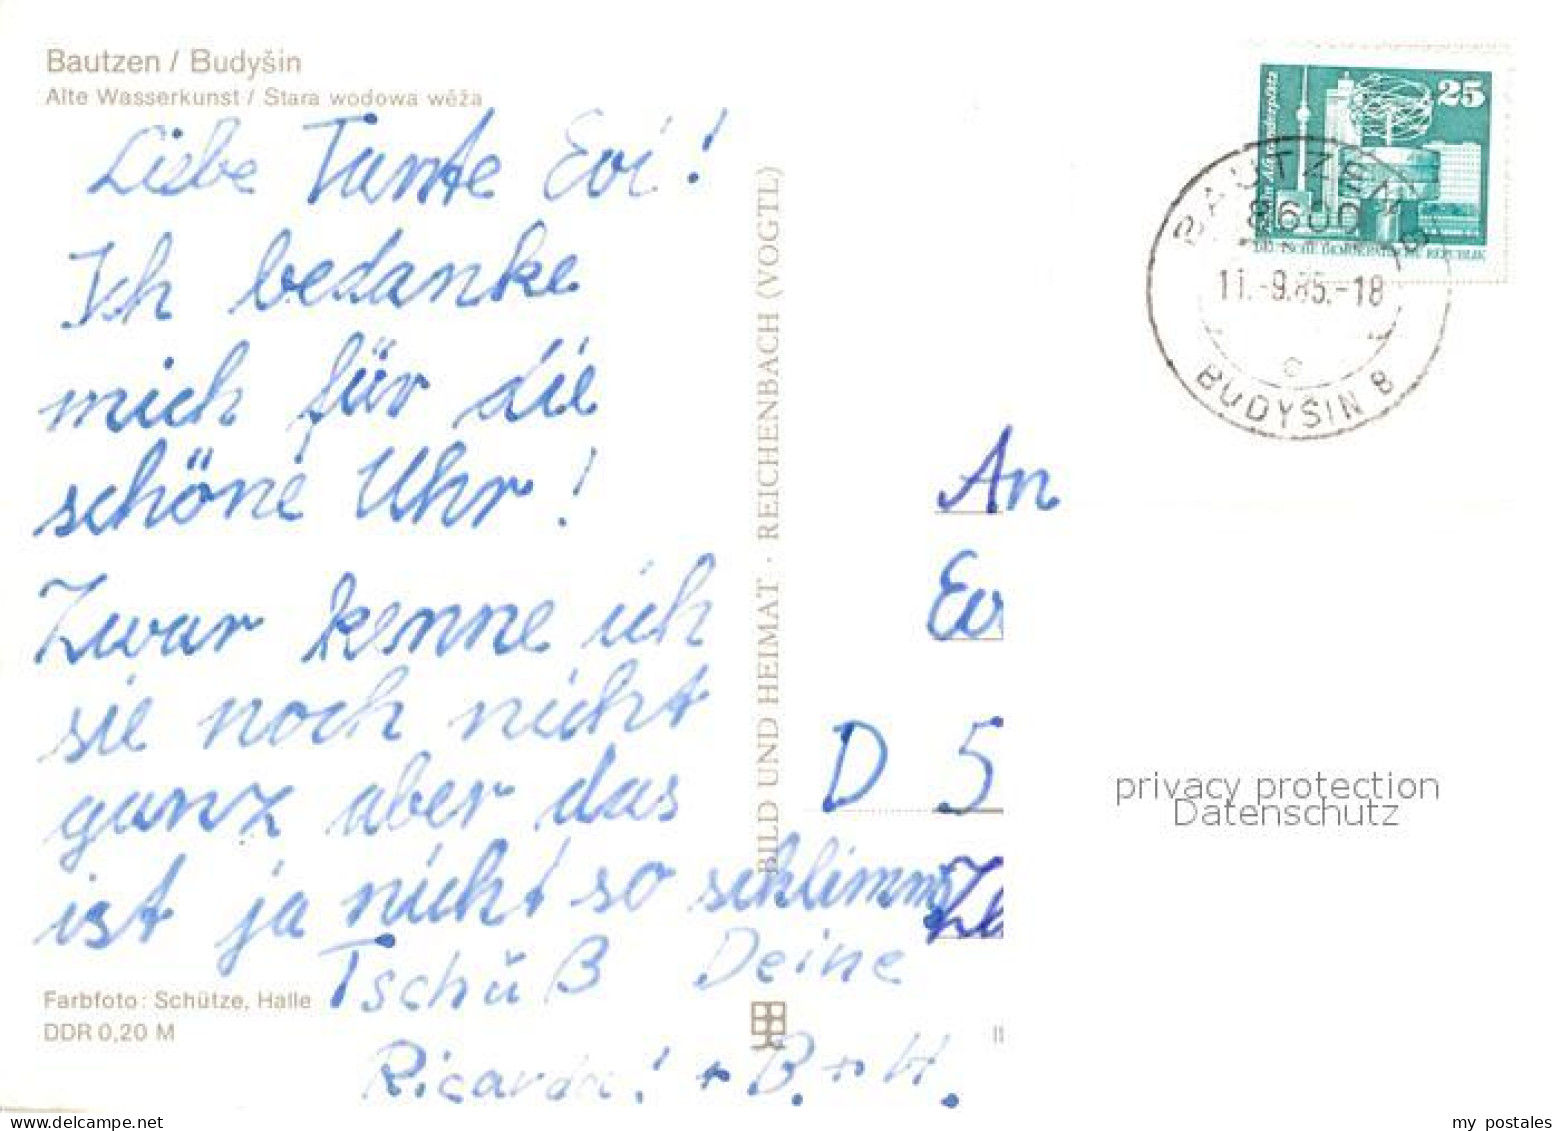 Bautzen / Budyšin
Alte Wasserkunst / Stara wodowa wěža
Liebe Tante Evi!
Ich bedanke
mich für die
schöne Uhr!
Zwar kenne ich
sie noch nicht
ganz aber das
ist ja nicht so schlimm.
Tschüß Deine
Ricarda! + B. + H.
Farbfoto: Schütze, Halle
DDR 0,20 M
BILD UND HEIMAT · REICHENBACH (VOGTL)
25
DEUTSCHE DEMOKRATISCHE REPUBLIK
BAUTZEN
8600
11.-9.85.-18
c
BUDYŠIN 8
An
Ev
D 5
privacy protection
Datenschutz
my postales